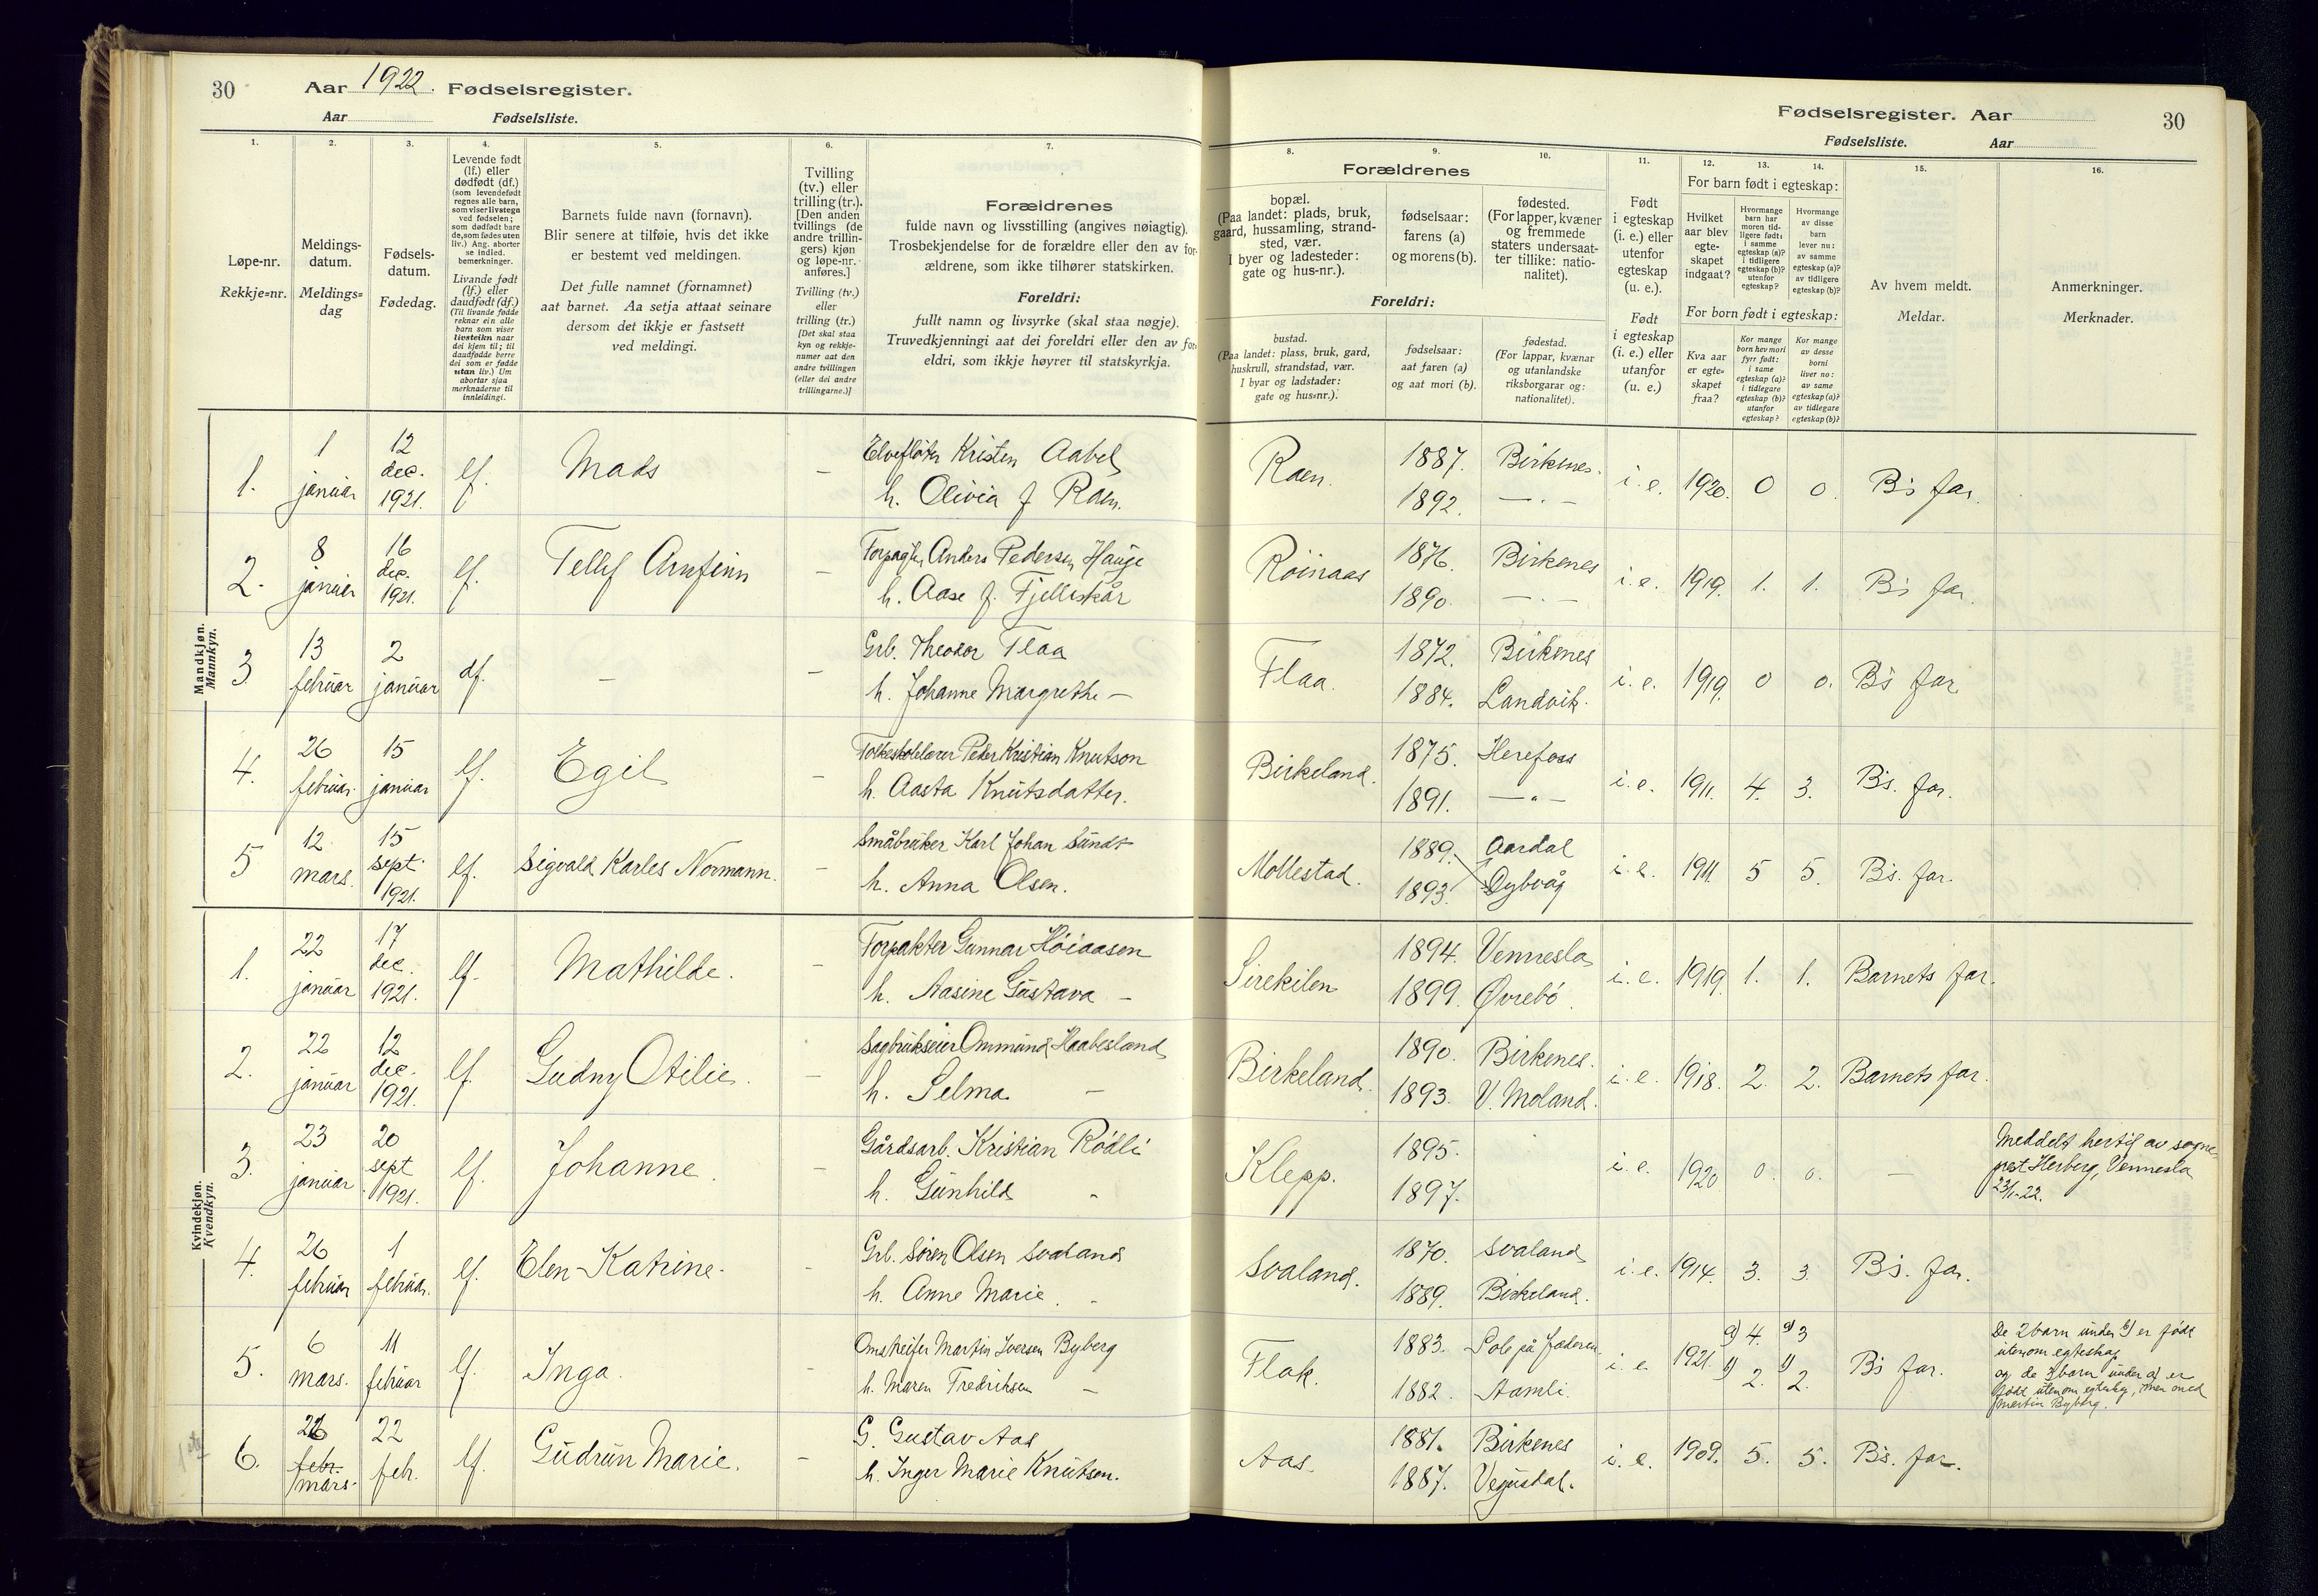 30
Aar 1922. Fødselsregister.
Aar Fødselsliste.
1.
2.
3.
4.
5.
6.
7.
Løpe-nr.
Rekkje=nr.
Meldings-
datum.
Meldings=
dag
Fødsels-
datum.
Fødedag.
Levende født
(lf.) eller
dødfødt (df.)
(som levendefødt
regnes alle barn,
som viser livstegn
ved fødselen;
som dødfødt bare
de, som fødes uten
liv.) Ang. aborter
se indled.
bemerkninger.
Livande født
(lf.) eller
daudfødt (df.)
(Til livande fødde
reknar ein alle
barn som viser
livsteikn naar
dei kjem til; til
daudfødde berre
dei som er fødde
utan liv.) Um
abortar sjaa
merknaderne til
innleidingi.
Barnets fulde navn (fornavn).
Blir senere at tilføie, hvis det ikke
er bestemt ved meldingen.
Det fulle namnet (fornamnet)
aat barnet. Aa setja attaat seinare
dersom det ikkje er fastsett
ved meldingi.
Tvilling
(tv.) eller
trilling (tr.).
[Den anden
tvillings (de
andre trillin-
gers) kjøn
og løpe-nr.
anføres.]
Tvilling (tv.)
eller
trilling (tr.)
[Det skal staa
kyn og rekkje-
numer aat den
andre tvillingen
(eller dei andre
trillingarne.)]
Forældrenes
fulde navn og livsstilling (angives nøiagtig).
Trosbekjendelse for de forældre eller den av for-
ældrene, som ikke tilhører statskirken.
Foreldri:
fullt namn og livsyrke (skal staa nøgje).
Truvedkjenningi aat dei foreldri eller den av for-
eldri, som ikkje høyrer til statskyrkja.
Fødselsregister. Aar
30
Fødselsliste. Aar
8.
9.
10.
11.
12.
13.
14.
15.
16.
Forældrenes
bopæl.
(Paa landet: plads, bruk,
gaard, hussamling, strand-
sted, vær.
I byer og ladesteder:
gate og hus-nr.).
fødselsaar:
farens (a)
og morens (b).
fødested.
(For lapper, kvæner
og fremmede
staters undersaat-
ter tillike: natio-
nalitet).
Foreldri:
bustad.
(Paa landet: plass, bruk, gard,
huskrull, strandstad, vær.
I byar og ladstader:
gate og hus=nr.).
fødselsaar:
aat faren (a)
og aat mori (b).
fødestad.
(For lappar, kvænar
og utanlandske
riksborgarar og:
nationalitet).
Født
i egteskap
(i. e.) eller
utenfor
egteskap
(u. e.).
Født
i egteskap
(i. e.) eller
utanfor
(u. e.)
For barn født i egteskap:
Hvilket
aar blev
egte-
skapet
indgaat?
Hvormange
barn har
moren tid-
ligere født:
i samme
egteskap (a)?
i tidligere
egteskap (b)?
utenfor
egteskap?
Hvormange
av disse
barn
lever nu:
av samme
egteskap (a)?
av tidligere
egteskap (b)?
For born født i egteskap:
Kva aar
er egte=
skapet
fraa?
Kor mange
born hev mori
fyrr født:
i same
egteskap (a)?
i tidlegare
egteskap (b)?
utanfor
egteskap?
Kor mange
av desse
borni
liver no:
av same
egteskap (a)?
av tidlegare
egteskap (b)?
Av hvem meldt.
Meldar.
Anmerkninger.
Merknader.
Mandkjøn.
Mannkyn.
1. 1 januar 12 dec. 1921. lf. Mads – Elvefløter Kristen Aabel
h. Olivia f Raen.
Raen. 1887. Birkenes. i. e. 1920. 0 0. B's far.
1892. — . —
2. 8 januar 16 dec. 1921. lf. Tellef Arnfinn – Forpagter Anders Pedersen Hauge
h. Aase f. Fjelleskår
Röinaas 1876. Birkenes i. e. 1919. 1. 1. B's far.
1890. — . —
3 13 februar 2 januar df. – – Grb. Theodor Flaa
h. Johanne Margrethe —
Flaa. 1872. Birkenes i. e. 1919. 0 0. B's far
1884. Landvik.
4. 26 februar. 15 januar lf. Egil – Folkeskolelærer Peder Kristian Knutson
h. Aasta Knutsdatter.
Birkeland. 1875. Herefoss i. e. 1911. 4. 3. B's. far.
1891. — " —
5 12 mars. 15 sept. 1921. lf. Sigvald Karles Normann. – Småbruker Karl Johan Sundt
h. Anna Olsen.
Mollestad. 1889. Aardal i. e. 1911. 5 5. B's. far.
1893. Dybvåg
Kvindekjøn.
Kvendkyn.
1. 22 januar 17 dec. 1921. lf. Mathilde. – Forpakter Gunnar Höiaasen
h. Aasine Gustava —
Sirekilen 1894. Vennesla i. e. 1919. 1. 1. Barnets far.
1899. Øvrebö.
2. 22 januar 12 dec. 1921. lf. Gudny Otilie. – Sagbrukseier Ommund Haabesland
h. Selma —
Birkeland. 1890. Birkenes. i. e. 1918. 2. 2. Barnets far.
1893. V. Moland.
3. 23 januar 20 sept 1921. lf. Johanne. – Gårdsarb. Kristian Rödli
h. Gunhild "
Klepp. 1895. i. e. 1920 0. 0. — Meddelt hertil av sogne-
prest Herberg, Vennesla
23/1-22.
1897.
4. 26 februar 1 februar. lf. Elen Katrine. – Grb. Sören Olsen Svaland
h. Anne Marie. "
Svaland. 1870. Svaland i. e. 1914. 3. 3. B's. far.
1889. Birkeland.
5. 6 mars. 11 februar lf. Inga. Omstreifer Martin Iversen Byberg
h. Maren Fredriksen —
Flak. 1883. Sole på Jæderen. i. e. 1921. a) 4. a) 3 B's far.
1882. Aamli. b) 2. b) 2.
De 2 barn under b) er född
utenom egteskap
og de 3 barn under a) er
född utenom egteskap, men med
Martin Byberg.
6. 26 febr. mars. 22 febr. lf. Gudrun Marie. – G. Gustav Aas
h. Inger Marie Knutsen.
Aas. 1881. Birkenes i. e. 1909. 5. 5. B's. far.
1887. Vegusdal.